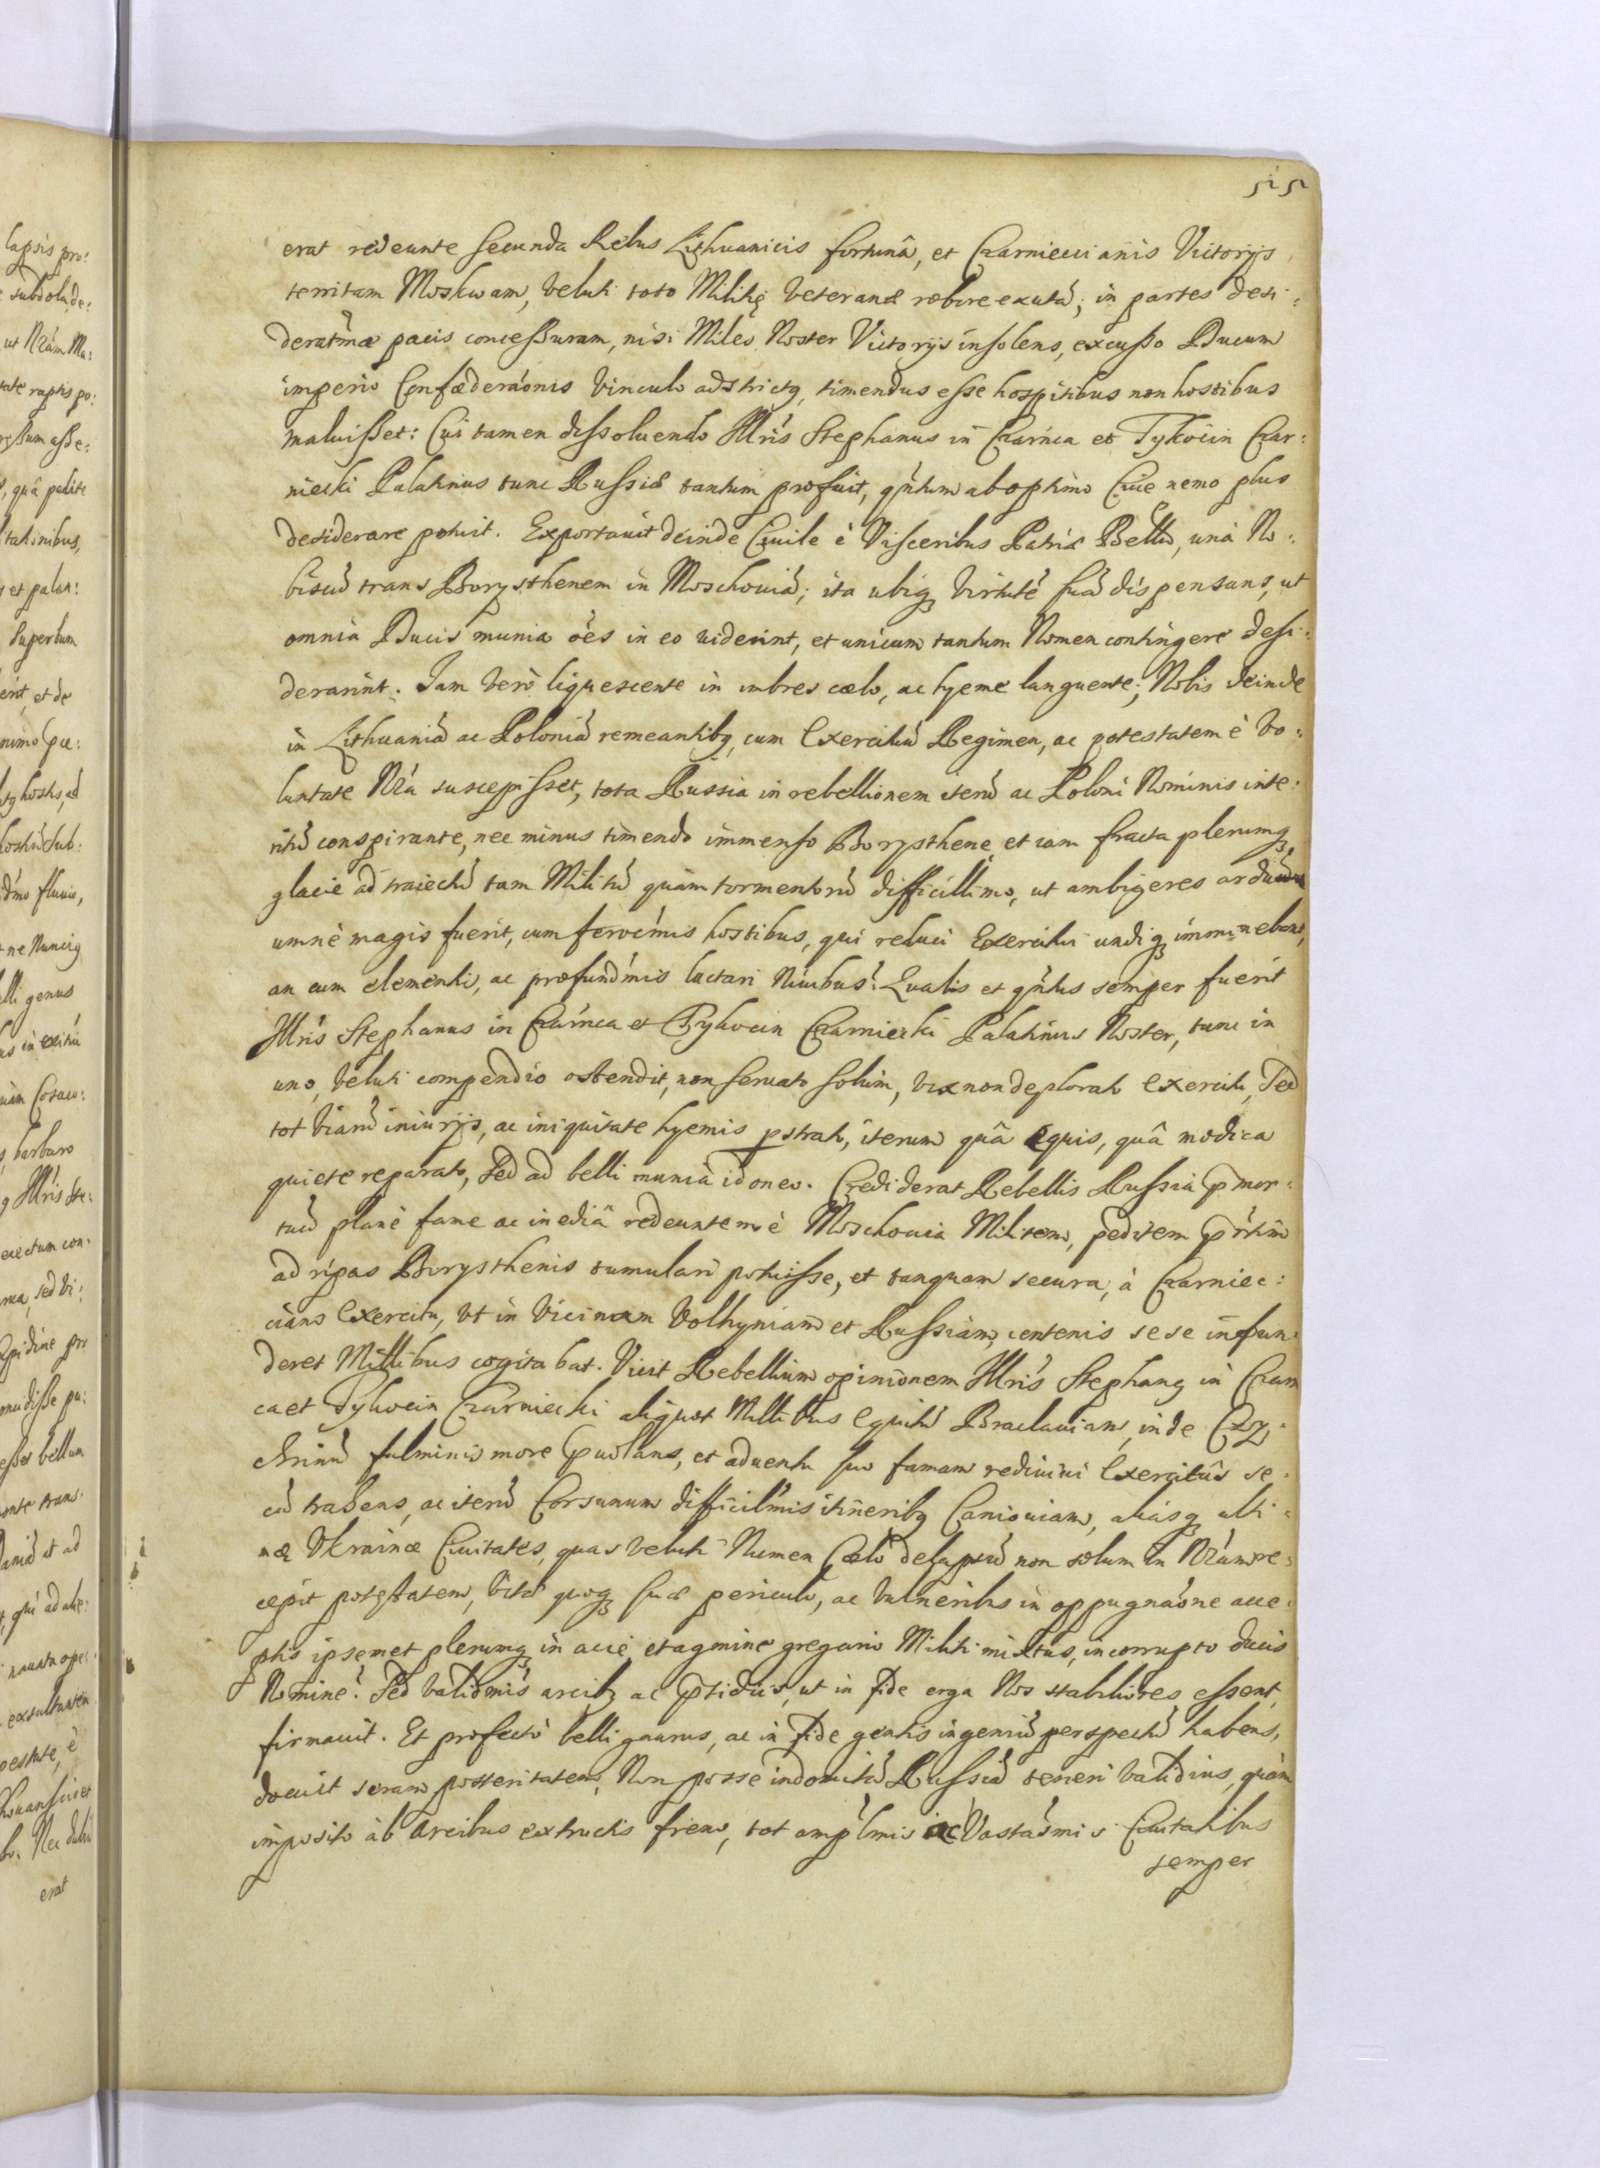 515
erat redeunte secunda Rebus Lithuanicis fortunâ, et Czarnieccianis Victorijs
territam Moskwam, veluti toto Militię veteranæ robore exutã; in partes desi:
deratm̃a pacis concessuram, nisi Miles Noster Victorijs insolens, excusso Ducum
imperio Confæderãonis vinculo adstrictq, timendus esse hospitibus non hostibus
maluisset: Cui tamen dissoluendo Illris Stephanus in Czarnca et Tykocin Czar:
niecki Palatinus tunc Russiæ tantum profuit, qñtum ab optimo Ciue nemo plus
desiderare potuit. Exportauit deinde Ciuile è Visceribus Patriæ Bellũ, unà No:
biscũ trans Borysthenem in Moschouiã; ita ubiq virtutẽ suã dispensans, ut
omnia Ducis munia oẽs in eo viderint, et unicum tantum Nomen contingere desi:
derarint. Iam verò liquescente in imbres cælo, ac hyeme languente; Nobis deinde
in Lithuaniã ac Poloniã remeantibq, cum Exercitũ Regimen, ac potestatem è vo:
luntate Nrã suscepisset, tota Russia in rebellionem iterũ ac Poloni Nominis inte:
ritũ conspirante, nec minus timendo immenso Borysthene et iam fracta plerumq
glacie ad traiectũ tam Militũ quàm tormentorũ difficillimo, ut ambigeres arduũ
umnè magis fuerit, cum ferocm̃is hostibus, qui reduci Exercitui undiq imminebant,
an cum elementis, ac profundm̃is luctari Niuibus? Qualis et qñtus semper fuerit
Illris Stephanus in Czarnca et Tykocin Czarniecki Palatinus Noster, tunc in
uno, veluti compendio ostendit, non seruato solùm, vix non deplorato Exercitu, Sed
tot viarũ iniurijs, ac iniquitate hyemis pstrato, iterum quâ equis, quâ modica
quiete reparato, Sed ad belli munia idoneo. Crediderat Rebellis Russia pmor:
tuũ planè fame ac inediâ redeuntem è Moschouia Militem, peditem prtim
ad ripas Borysthenis tumulari potuisse, et tanquam secura, à Czarniec:
ciano Exercitu, Vt in vicinam Volhyniam et Russiam, centenis sese infun:
deret Millibus cogitabat. Vicit Rebellium opinionem Illris Stephanq in Czarn
ca et Tykocin Czarniecki aliquot Millibus Equitũ Braclauiam, inde Czy:
chrinũ fulminis more puolans, et aduentu suo famam rediuiui Exercitûs se:
cũ trahens, ac iterũ Corsunum difficilm̃is itineribq Caniouiam, aliasq ulti:
mæ Vkrainæ Ciuitates, quas veluti Numen Cælò delapsũ non solum in Nrãm re:
cepit potestatem, Vitæ quoq suæ periculo, ac vulneribus in oppugnãone acce:
ptis ipsemet plerumq in acie et agmine gregario Militi mixtus, incorrupto ducis
Nomine? Sed validm̃is arcibq ac psidijs, ut in fide erga Nos stabiliores essent,
firmauit. Et profectò belli gnarus, ac in fide gentis ingeniũ perspectũ habens,
docuit seram posteritatem, Non posse indomitã Russiã teneri validius, quàm
imposito ab Arcibus extructis freno, tot amplm̃is ac Vastãmis Ciuitatibus
semper